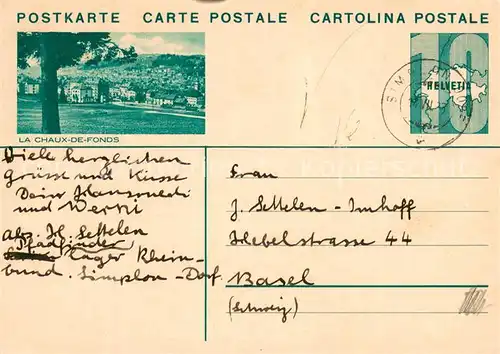 POSTKARTE CARTE POSTALE CARTOLINA POSTALE
10
HELVETIA
LA CHAUX-DE-FONDS
Viele herzlichen
Grüsse und Küsse
Dein Hansruedi
und Werni
Abs. H. Settelen
Pfadfinder
Lager Rhein-
bund. Simplon-Dorf.
Frau
J. Settelen-Imhoff
Hebelstrasse 44
Basel
(Schweiz)